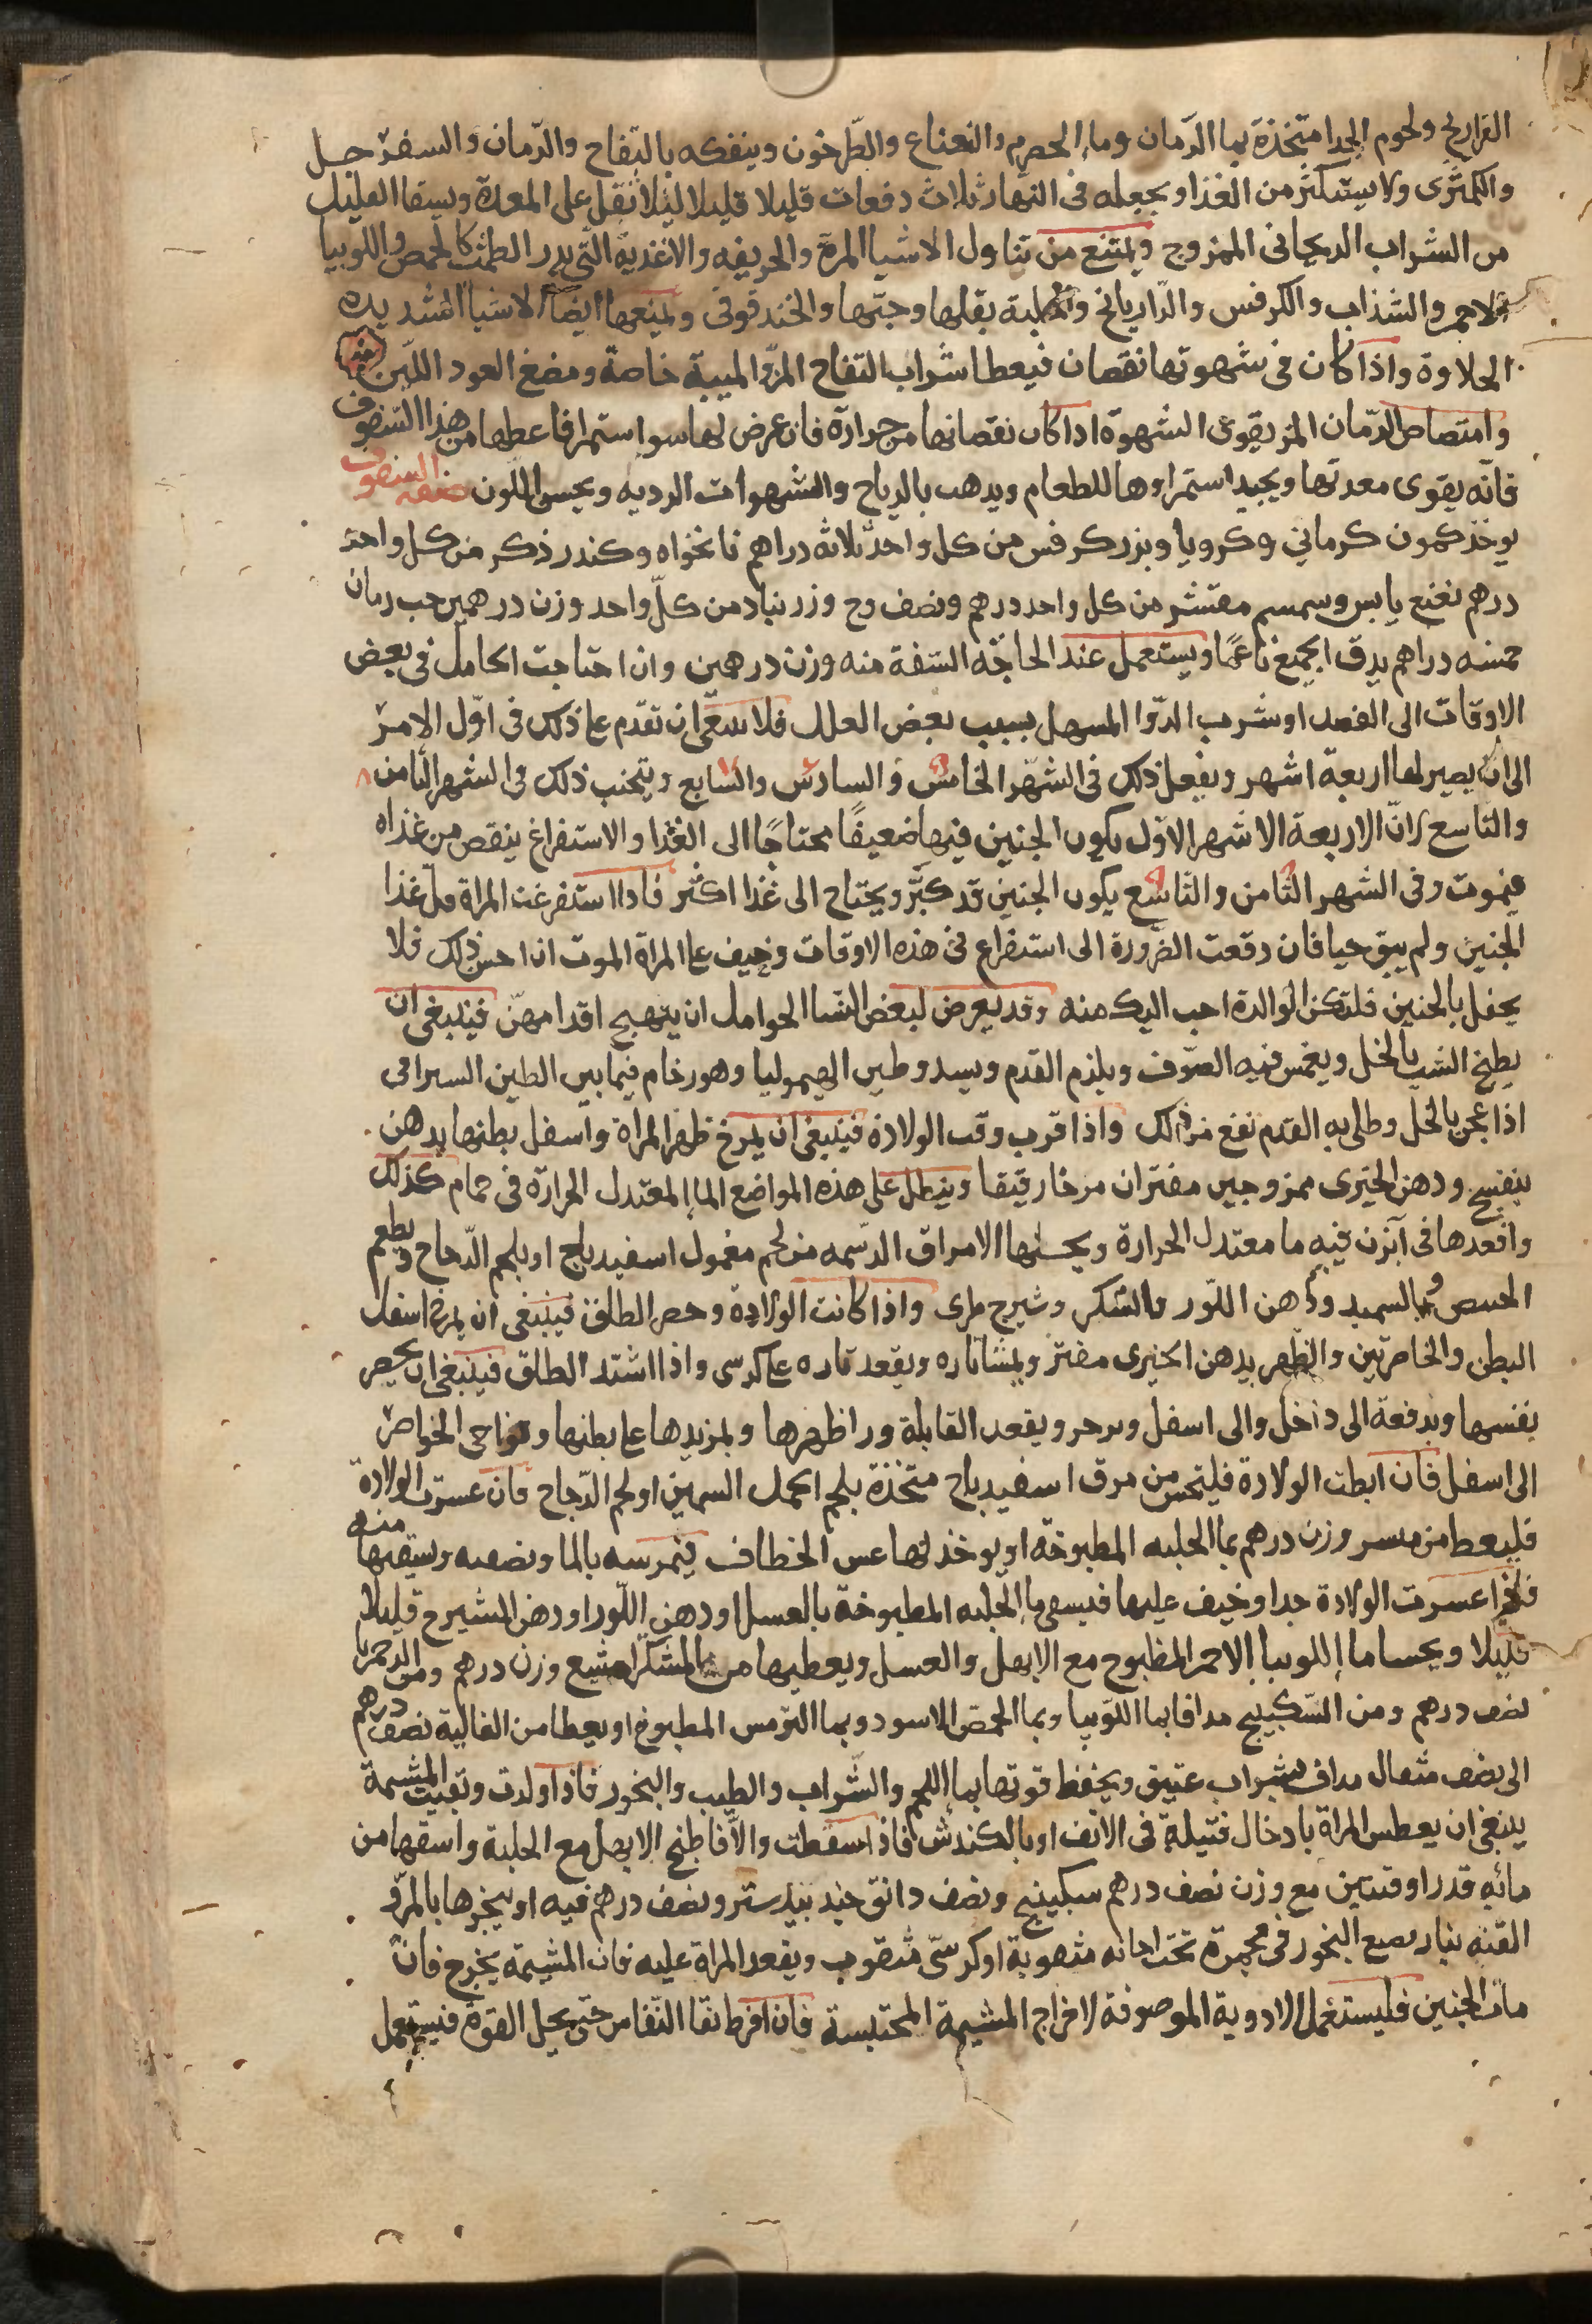 الفراريج ولحوم الجدا متخذة بما الرّمان وما الحصرم والنعناع والطّرخون ويتفكه بالتفاح والرّمان والسفرجل
والكمثرى ولا يستكثر من الغذا ويجعله فى النهار ثلاث دفعات قليلا قليلا ليلا يثقل على المعدة ويسقا القليل
من الشراب الريحانى الممزوج ويمتنع من تناول الاشيا المرة والحريفه والاغذية التى يدر الطمث كالحمص واللوبيا
الاحمر والشذاب والكرفس والرازيانج والحلبة بقلها وحبّها والخندقوقى ويمنعها ايضا الاشيا الشديده
الحلاوة واذا كان فى شهوتها نقصان فيعطا شراب التفاح المزّ والميبة خاصة ومضغ العود اللبن
وامتصاص الرّمان المز يقوى الشهوة اذا كان نقصانها من حرارة فان عرض لها سو استمرا فاعطها من هذا السفوف
فانّه يقوى معدتها ويجيد استمراوها للطعام ويذهب بالرياح والشهوات الرديه ويحسن اللون صفه السفوف
يوخذ كمون كرماني وكرويا وبزر كرفس من كل واحد ثلاثه دراهم نانخواه وكندر ذكر من كل واحد
درهم نعنع يابس وسمسم مقشر من كل واحد درهم ونصف وج وزرنباد من كلّ واحد وزن درهمين حب رمان
خمسه دراهم يدق الجميع ناعمًا ويستعمل عند الحاجّه السّفة منه وزن درهمين وان احتاجت الحامل فى بعض
الاوقات الى الفصد او شرب الدّوا المسهل بسبب بعض العلل فلا ينبغى ان تقدم على ذلك فى اوّل الامر
الى ان يصير لها اربعة اشهر ويفعل ذلك فى الشهر الخامس والسادس والسابع ويتجنب ذلك فى الشهر الثامن
والتاسع لانّ الاربعة الاشهر الاوّل يكون الجنين فيها ضعيفًا محتاجًا الى الغذا والاستفراغ ينقص من غذاه
فيموت وفى الشهر الثامن والتاسع يكون الجنين قد كبّر ويحتاج الى غذا اكثر فاذا استفرغت المراة قل غذا
الجنين ولم يبق حيا فان دفعت الضرورة الى استفراغ فى هذه الاوقات وخيف على المراة الموت ان احس ذلك فلا
يحفل بالجنين فلتكن الوالدة احب اليك منه وقد يعرض لبعض النسا الحوامل ان يتهيج اقدامهنّ فينبغى ان
يطبخ الشب بالخل ويغمس فيه الصّوف ويلزم القدم ويسد وطين القيموليا وهو رخام فيما بين الطين السيرافى
اذا عجن بالخل وطلى به القدم نفع من ذلك واذا قرب وقت الولادة فينبغى ان يمرخ ظهر المراة واسفل بطنها بدهن
بنفسج ودهن الخيرى ممزوجين مفتران مرخا رقيقا وينطل على هذه المواضع الما المعتدل الحرارة فى حمام كذلك
واقعدها فى آبزن فيه ما معتدل الحرارة ويحسيها الامراق الدّسمه من لحم مغمول اسفيدباج او بلحم الدّجاج ويطعم
الحسو بالسميد ودهن اللّوز والسّكر وشيرج طرى واذا كانت الولادة وحصر الطلق فينبغى ان يمرخ اسفل
البطن والخاصرتين والظهر بدهن الخيرى مفتر ويمشا تاره ويقعد تاره على كرسى واذا اشتد الطلق فينبغى ان يحصر
بنفسها ويدفعه الى داخل والى اسفل ويزحر ويقعد القابلة ورا ظهرها ويمر يدها على بطنها ونواحى الخواصر
الى اسفل فان ابطت الولادة فليتحسى من مرق اسفيدباج متخذة بلحم الحمل السمين او لحم الدّجاج فان عسرت الولادة
فليعط من مر وزن درهم بما الحلبه المطبوخة او يوخذ لها عش الخطاف فيمرسه بالما ويصفيه ويسقيها منه
فاذا عسرت الولادة جدا وخيف عليها فيسقى ما الحلبه المطبوخة بالعسل او دهن اللّوز او دهن الشيرج قليلا
قليلا ويحسا ما اللوبيا الاحمر المطبوخ مع الابهل والعسل ويعطيها من المشكطرامشيع وزن درهم ومن الدحمرثا
نصف درهم ومن السّكبينج مدافا بما اللّوبيا وبما الحمّص الاسود وبما الترّمس المطبوخ او يعطا من الغالية نصف درهم
الى نصف مثقال مداف بشراب عتيق ويحفظ قوتها بما اللحم والشّراب والطيب والبخور فاذا ولدت وبقيت المشيمة
ينبغى ان يعطس المراة بادخال فتيلة فى الانف او بالكندش فاذا اسقطت والّا فاطبخ الابهل مع الحلبة واسقها من
مائه قدر اوقيتين مع وزن نصف درهم سكبينج ونصف دانق جند بيدستر ونصف درهم فيه او يبخرها بالمرّ و
القنه بنار يضع البخور فى مجمرة تحت اجانه مثقوبة او كرسّى مثقوب ويقعد المراة عليه فان المشيمة يخرج فان
مات الجنين فليستعمل الادوية الموصوفة لاخراج المشيمة المحتبسة فان افرط نقا النفاس حتى يحل القوة فيستعمل